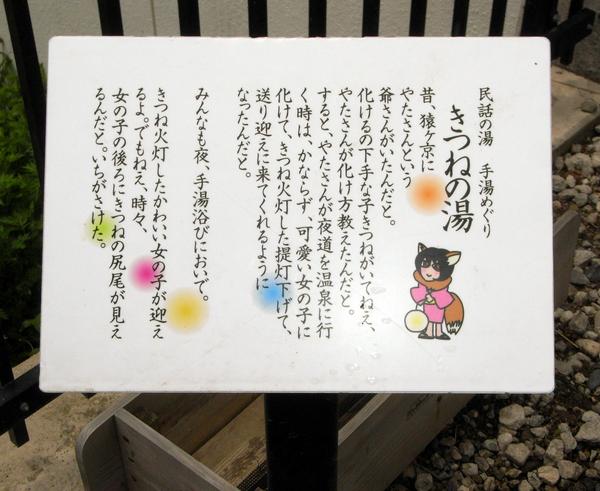 民話の湯　手湯めぐり
きつねの湯
昔、猿ヶ京に
やたさんという
爺さんがいたんだと。
化けるの下手な子ぎつねがいてねえ、
やたさんが化け方教えたんだと。
すると、やたさんが夜道を温泉に行
く時は、かならず、可愛い女の子に
化けて、きつね火灯した提灯下げて、
送り迎えに来てくれるように
なったんだと。
みんなも夜、手湯浴びにおいで。
きつね火灯したかわいい女の子が迎え
るよ。でもねえ、時々、
女の子の後ろにきつねの尻尾が見え
るんだと。いちがさけた。